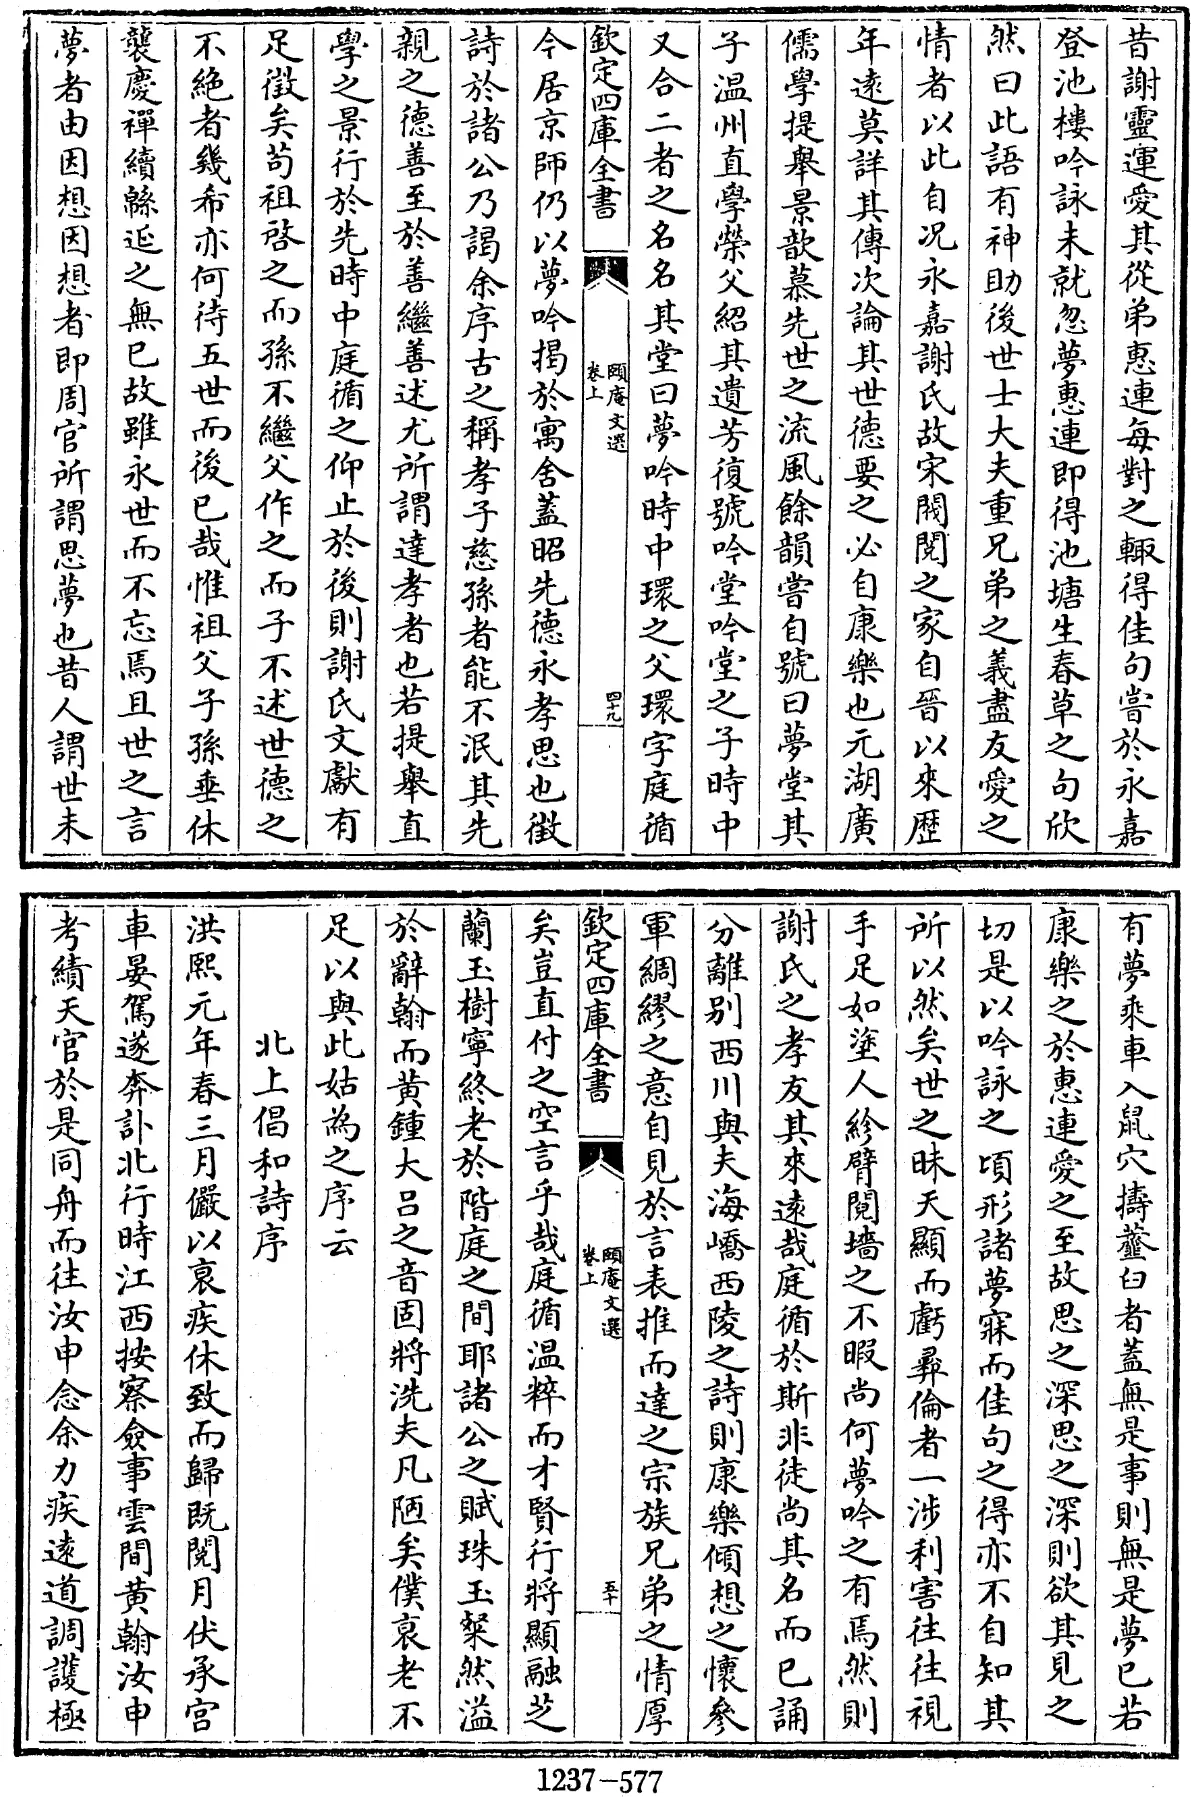 昔謝靈運愛其從弟惠連每對之輙得佳句嘗於永嘉
登池樓吟詠未就忽夢惠連即得池塘生春草之句欣
然曰此語有神助後世士大夫重兄弟之義盡友愛之
情者以此自况永嘉謝氏故宋閥閲之家自晉以來歴
年逺莫詳其傳次論其世德要之必自康樂也元湖廣
儒學提舉景歆慕先世之流風餘韻嘗自號曰夢堂其
子温州直學榮父紹其遺芳復號吟堂吟堂之子時中
又合二者之名名其堂曰夢吟時中環之父環字庭循
欽定四庫全書
頤庵文選
卷上
四十九
今居京師仍以夢吟掲於寓舍蓋昭先德永孝思也徴
詩於諸公乃謁余序古之稱孝子慈孫者能不泯其先
親之德善至於善繼善述尤所謂達孝者也若提舉直
學之景行於先時中庭循之仰止於後則謝氏文獻有
足徴矣苟祖啓之而孫不繼父作之而子不述世德之
不絶者幾希亦何待五世而後已哉惟祖父子孫垂休
襲慶禪續緜延之無已故雖永世而不忘焉且世之言
夢者由因想因想者即周官所謂思夢也昔人謂世未
有夢乘車入鼠穴擣虀臼者蓋無是事則無是夢已若
康樂之於惠連愛之至故思之深思之深則欲其見之
切是以吟詠之頃形諸夢寐而佳句之得亦不自知其
所以然矣世之昧天顯而虧彛倫者一涉利害往往視
手足如塗人紾臂鬩墻之不暇尚何夢吟之有焉然則
謝氏之孝友其來逺哉庭循於斯非徒尚其名而已誦
分離别西川與夫海嶠西陵之詩則康樂傾想之懷參
軍綢繆之意自見於言表推而達之宗族兄弟之情厚
欽定四庫全書
頤庵文選
卷上
五十
矣豈直付之空言乎哉庭循温粹而才賢行將顯融芝
蘭玉樹寧終老於階庭之間耶諸公之賦珠玉粲然溢
於辭翰而黄鍾大吕之音固將洗夫凡陋矣僕哀老不
足以與此姑為之序云
北上倡和詩序
洪熙元年春三月儼以哀疾休致而歸既閲月伏承宫
車晏駕遂奔訃北行時江西按察僉事雲間黄翰汝申
考績天官於是同舟而往汝申念余力疾逺道調護極
1237-577